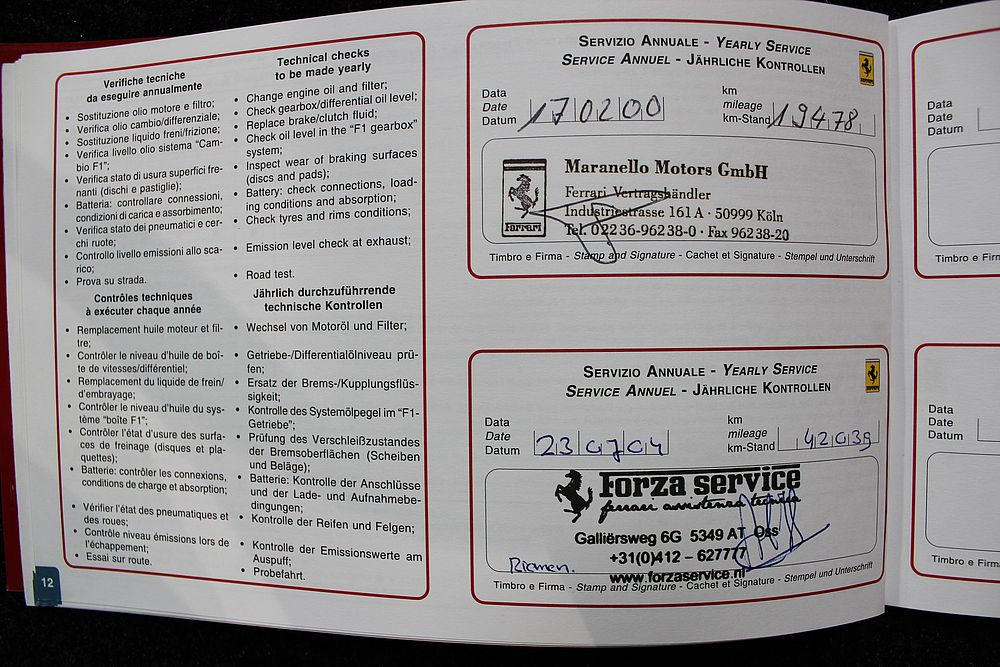 Verifiche tecniche
da eseguire annualmente
• Sostituzione olio motore e filtro;
• Verifica olio cambio/differenziale;
• Sostituzione liquido freni/frizione;
• Verifica livello olio sistema "Cam-
bio F1";
• Verifica stato di usura superfici fre-
nanti (dischi e pastiglie);
• Batteria: controllare connessioni,
condizioni di carica e assorbimento;
• Verifica stato dei pneumatici e cer-
chi ruote;
• Controllo livello emissioni allo sca-
rico;
• Prova su strada.
Technical checks
to be made yearly
• Change engine oil and filter;
• Check gearbox/differential oil level;
• Replace brake/clutch fluid;
• Check oil level in the "F1 gearbox"
system;
• Inspect wear of braking surfaces
(discs and pads);
• Battery: check connections, load-
ing conditions and absorption;
• Check tyres and rims conditions;
• Emission level check at exhaust;
• Road test.
Contrôles techniques
à exécuter chaque année
• Remplacement huile moteur et fil-
tre;
• Contrôler le niveau d'huile de boî-
te de vitesses/différentiel;
• Remplacement du liquide de frein/
d'embrayage;
• Contrôler le niveau d'huile du sys-
tème "boîte F1";
• Contrôler l'état d'usure des surfa-
ces de freinage (disques et pla-
quettes);
• Batterie: contrôler les connexions,
conditions de charge et absorption;
• Vérifier l'état des pneumatiques et
des roues;
• Contrôle niveau émissions lors de
l'échappement;
• Essai sur route.
Jährlich durchzuführrende
technische Kontrollen
• Wechsel von Motoröl und Filter;
• Getriebe-/Differentialölniveau prü-
fen;
• Ersatz der Brems-/Kupplungsflüs-
sigkeit;
• Kontrolle des Systemölpegel im "F1-
Getriebe";
• Prüfung des Verschleißzustandes
der Bremsoberflächen (Scheiben
und Beläge);
• Batterie: Kontrolle der Anschlüsse
und der Lade- und Aufnahmebe-
dingungen;
• Kontrolle der Reifen und Felgen;
• Kontrolle der Emissionswerte am
Auspuff;
• Probefahrt.
12
Servizio Annuale - Yearly Service
Service Annuel - Jährliche Kontrollen
Data
Date
Datum 170200
km
mileage
km-Stand 19478
Ferrari
Maranello Motors GmbH
Ferrari Vertragshändler
Industriestrasse 161 A · 50999 Köln
Tel. 02236-96238-0 · Fax 96238-20
Timbro e Firma - Stamp and Signature - Cachet et Signature - Stempel und Unterschrift
Servizio Annuale - Yearly Service
Service Annuel - Jährliche Kontrollen
Data
Date
Datum 230704
km
mileage
km-Stand 42039
forza service
ferrari assistenza tecnica
Galliërsweg 6G 5349 AT Oss
+31(0)412 - 627777
www.forzaservice.nl
Timbro e Firma - Stamp and Signature - Cachet et Signature - Stempel und Unterschrift
Data
Date
Datum
Timbro e Firm
Data
Date
Datum
Timbro e Firm